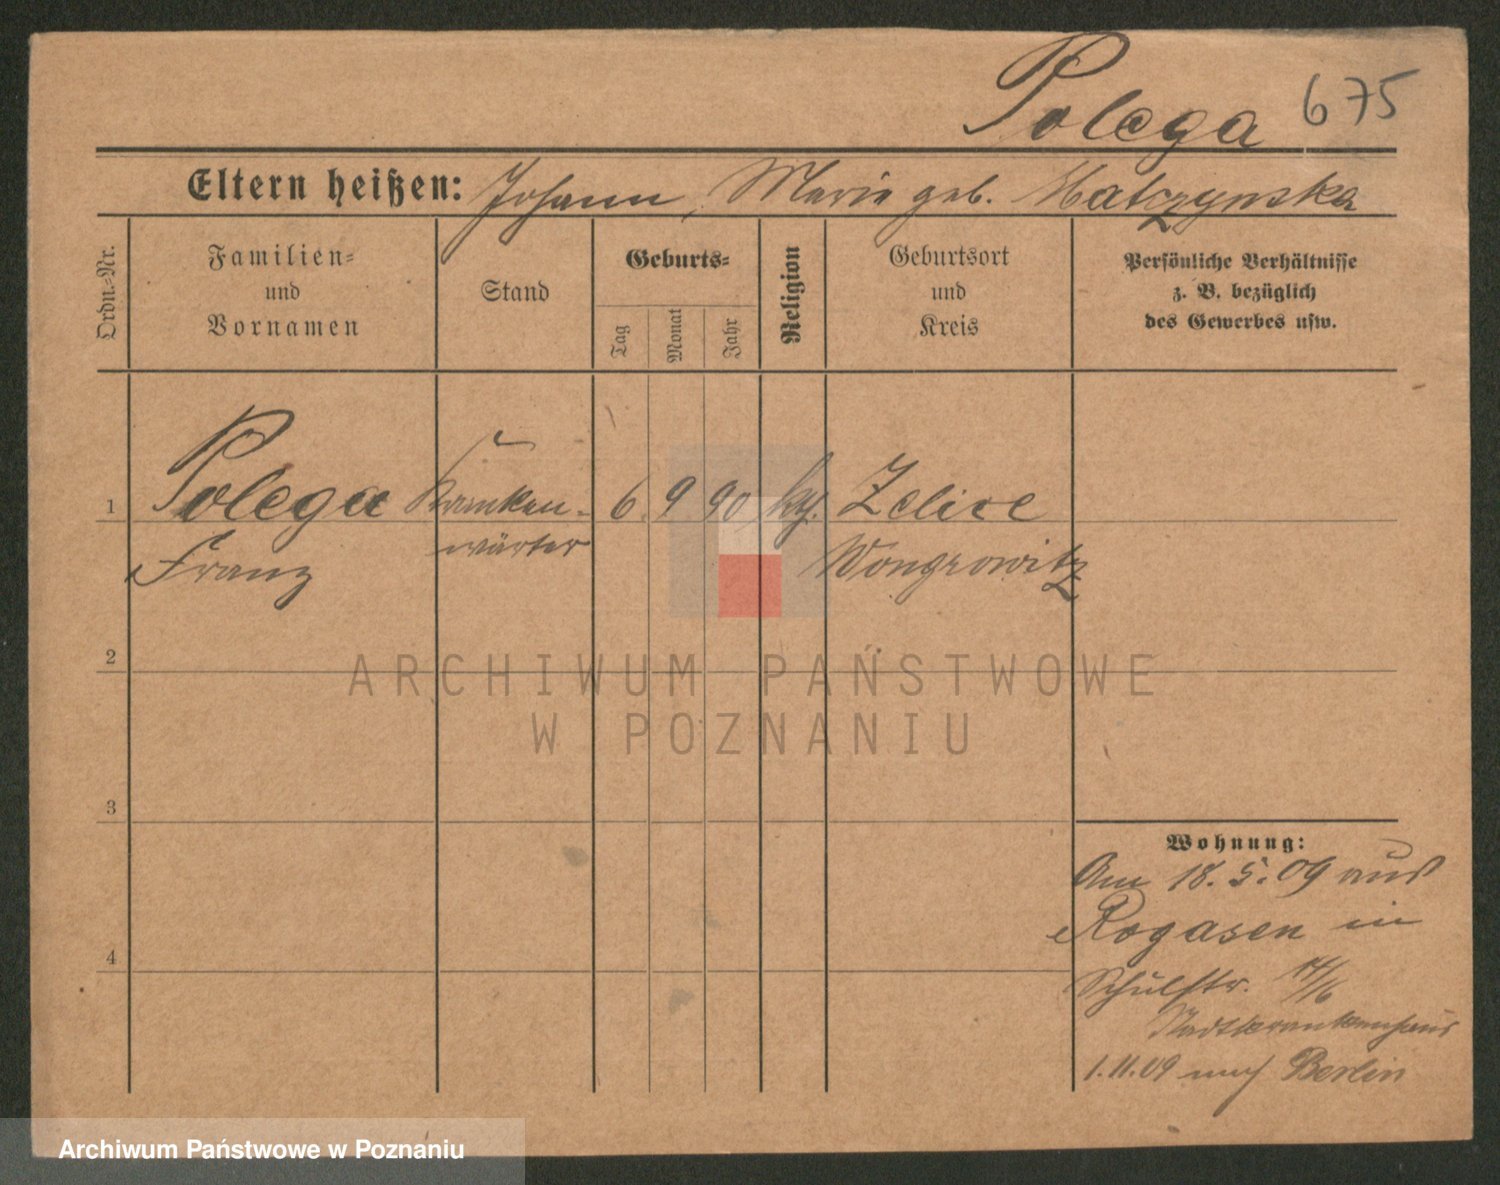 Polega 675
Eltern heißen: Johann, Marie geb. Matczynska
Ordn.-Nr.
Familien-
und
Vornamen
Stand
Geburts-
Tag
Monat
Jahr
Religion
Geburtsort
und
Kreis
Persönliche Verhältnisse
z. B. bezüglich
des Gewerbes usw.
1 Polega Kranken- 6. 9 90 kth. Zelice
Franz wärter Wongrowitz
2
ARCHIWUM PAŃSTWOWE
W POZNANIU
3
Wohnung:
Am 18. 5. 09 aus
Rogasen in
4
Schulstr. 14/16
Stadtkrankenhaus
1.11.09 nach Berlin
Archiwum Państwowe w Poznaniu